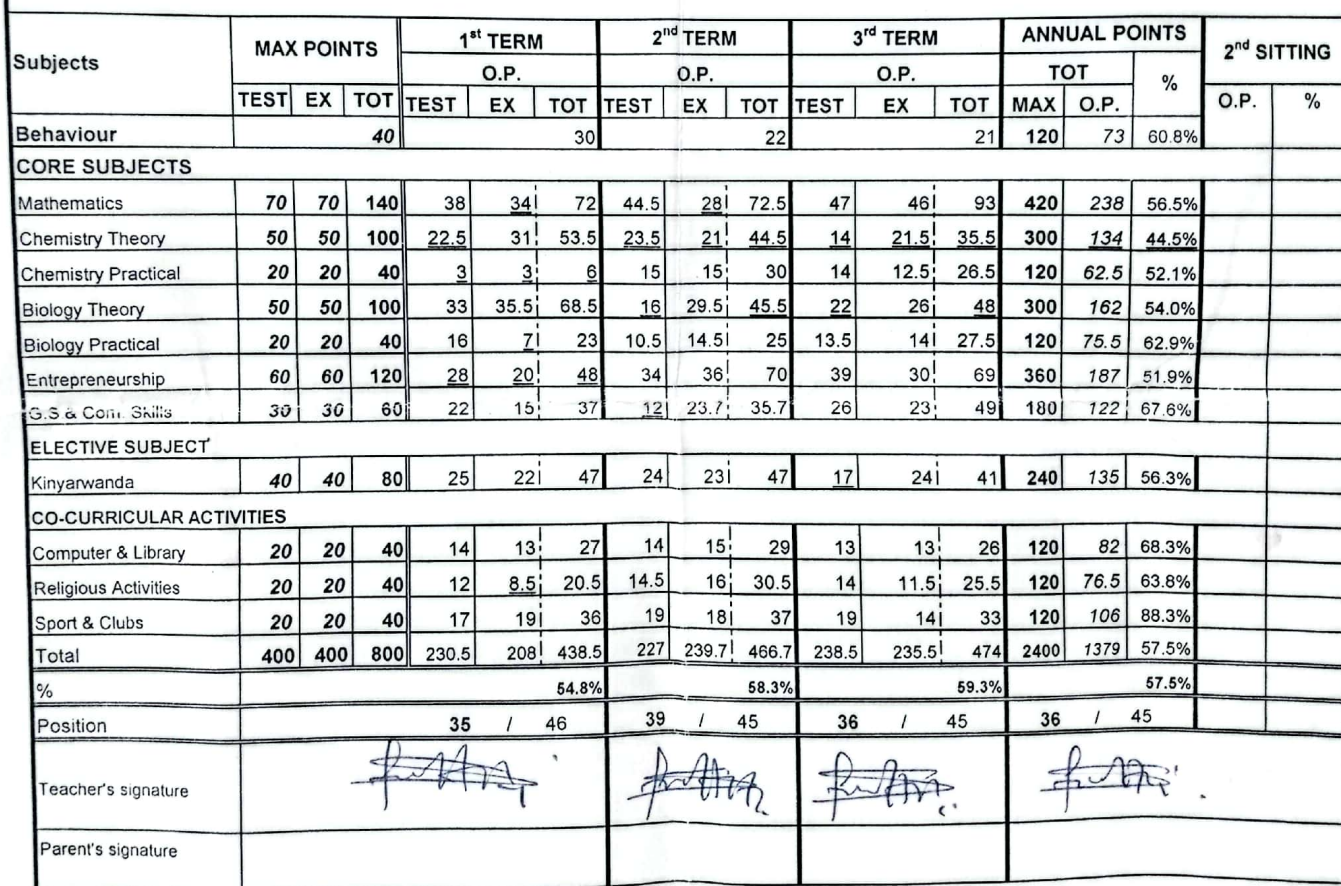 Subjects MAX POINTS 1st TERM 2nd TERM 3rd TERM ANNUAL POINTS 2nd SITTING
O.P. O.P. O.P. TOT %
TEST EX TOT TEST EX TOT TEST EX TOT TEST EX TOT MAX O.P. O.P. %
Behaviour 40 30 22 21 120 73 60.8%
CORE SUBJECTS
Mathematics 70 70 140 38 34 72 44.5 28 72.5 47 46 93 420 238 56.5%
Chemistry Theory 50 50 100 22.5 31 53.5 23.5 21 44.5 14 21.5 35.5 300 134 44.5%
Chemistry Practical 20 20 40 3 3 6 15 15 30 14 12.5 26.5 120 62.5 52.1%
Biology Theory 50 50 100 33 35.5 68.5 16 29.5 45.5 22 26 48 300 162 54.0%
Biology Practical 20 20 40 16 7 23 10.5 14.5 25 13.5 14 27.5 120 75.5 62.9%
Entrepreneurship 60 60 120 28 20 48 34 36 70 39 30 69 360 187 51.9%
G.S & Com. Skills 30 30 60 22 15 37 12 23.7 35.7 26 23 49 180 122 67.6%
ELECTIVE SUBJECT
Kinyarwanda 40 40 80 25 22 47 24 23 47 17 24 41 240 135 56.3%
CO-CURRICULAR ACTIVITIES
Computer & Library 20 20 40 14 13 27 14 15 29 13 13 26 120 82 68.3%
Religious Activities 20 20 40 12 8.5 20.5 14.5 16 30.5 14 11.5 25.5 120 76.5 63.8%
Sport & Clubs 20 20 40 17 19 36 19 18 37 19 14 33 120 106 88.3%
Total 400 400 800 230.5 208 438.5 227 239.7 466.7 238.5 235.5 474 2400 1379 57.5%
% 54.8% 58.3% 59.3% 57.5%
Position 35 / 46 39 / 45 36 / 45 36 / 45
Teacher's signature
Parent's signature